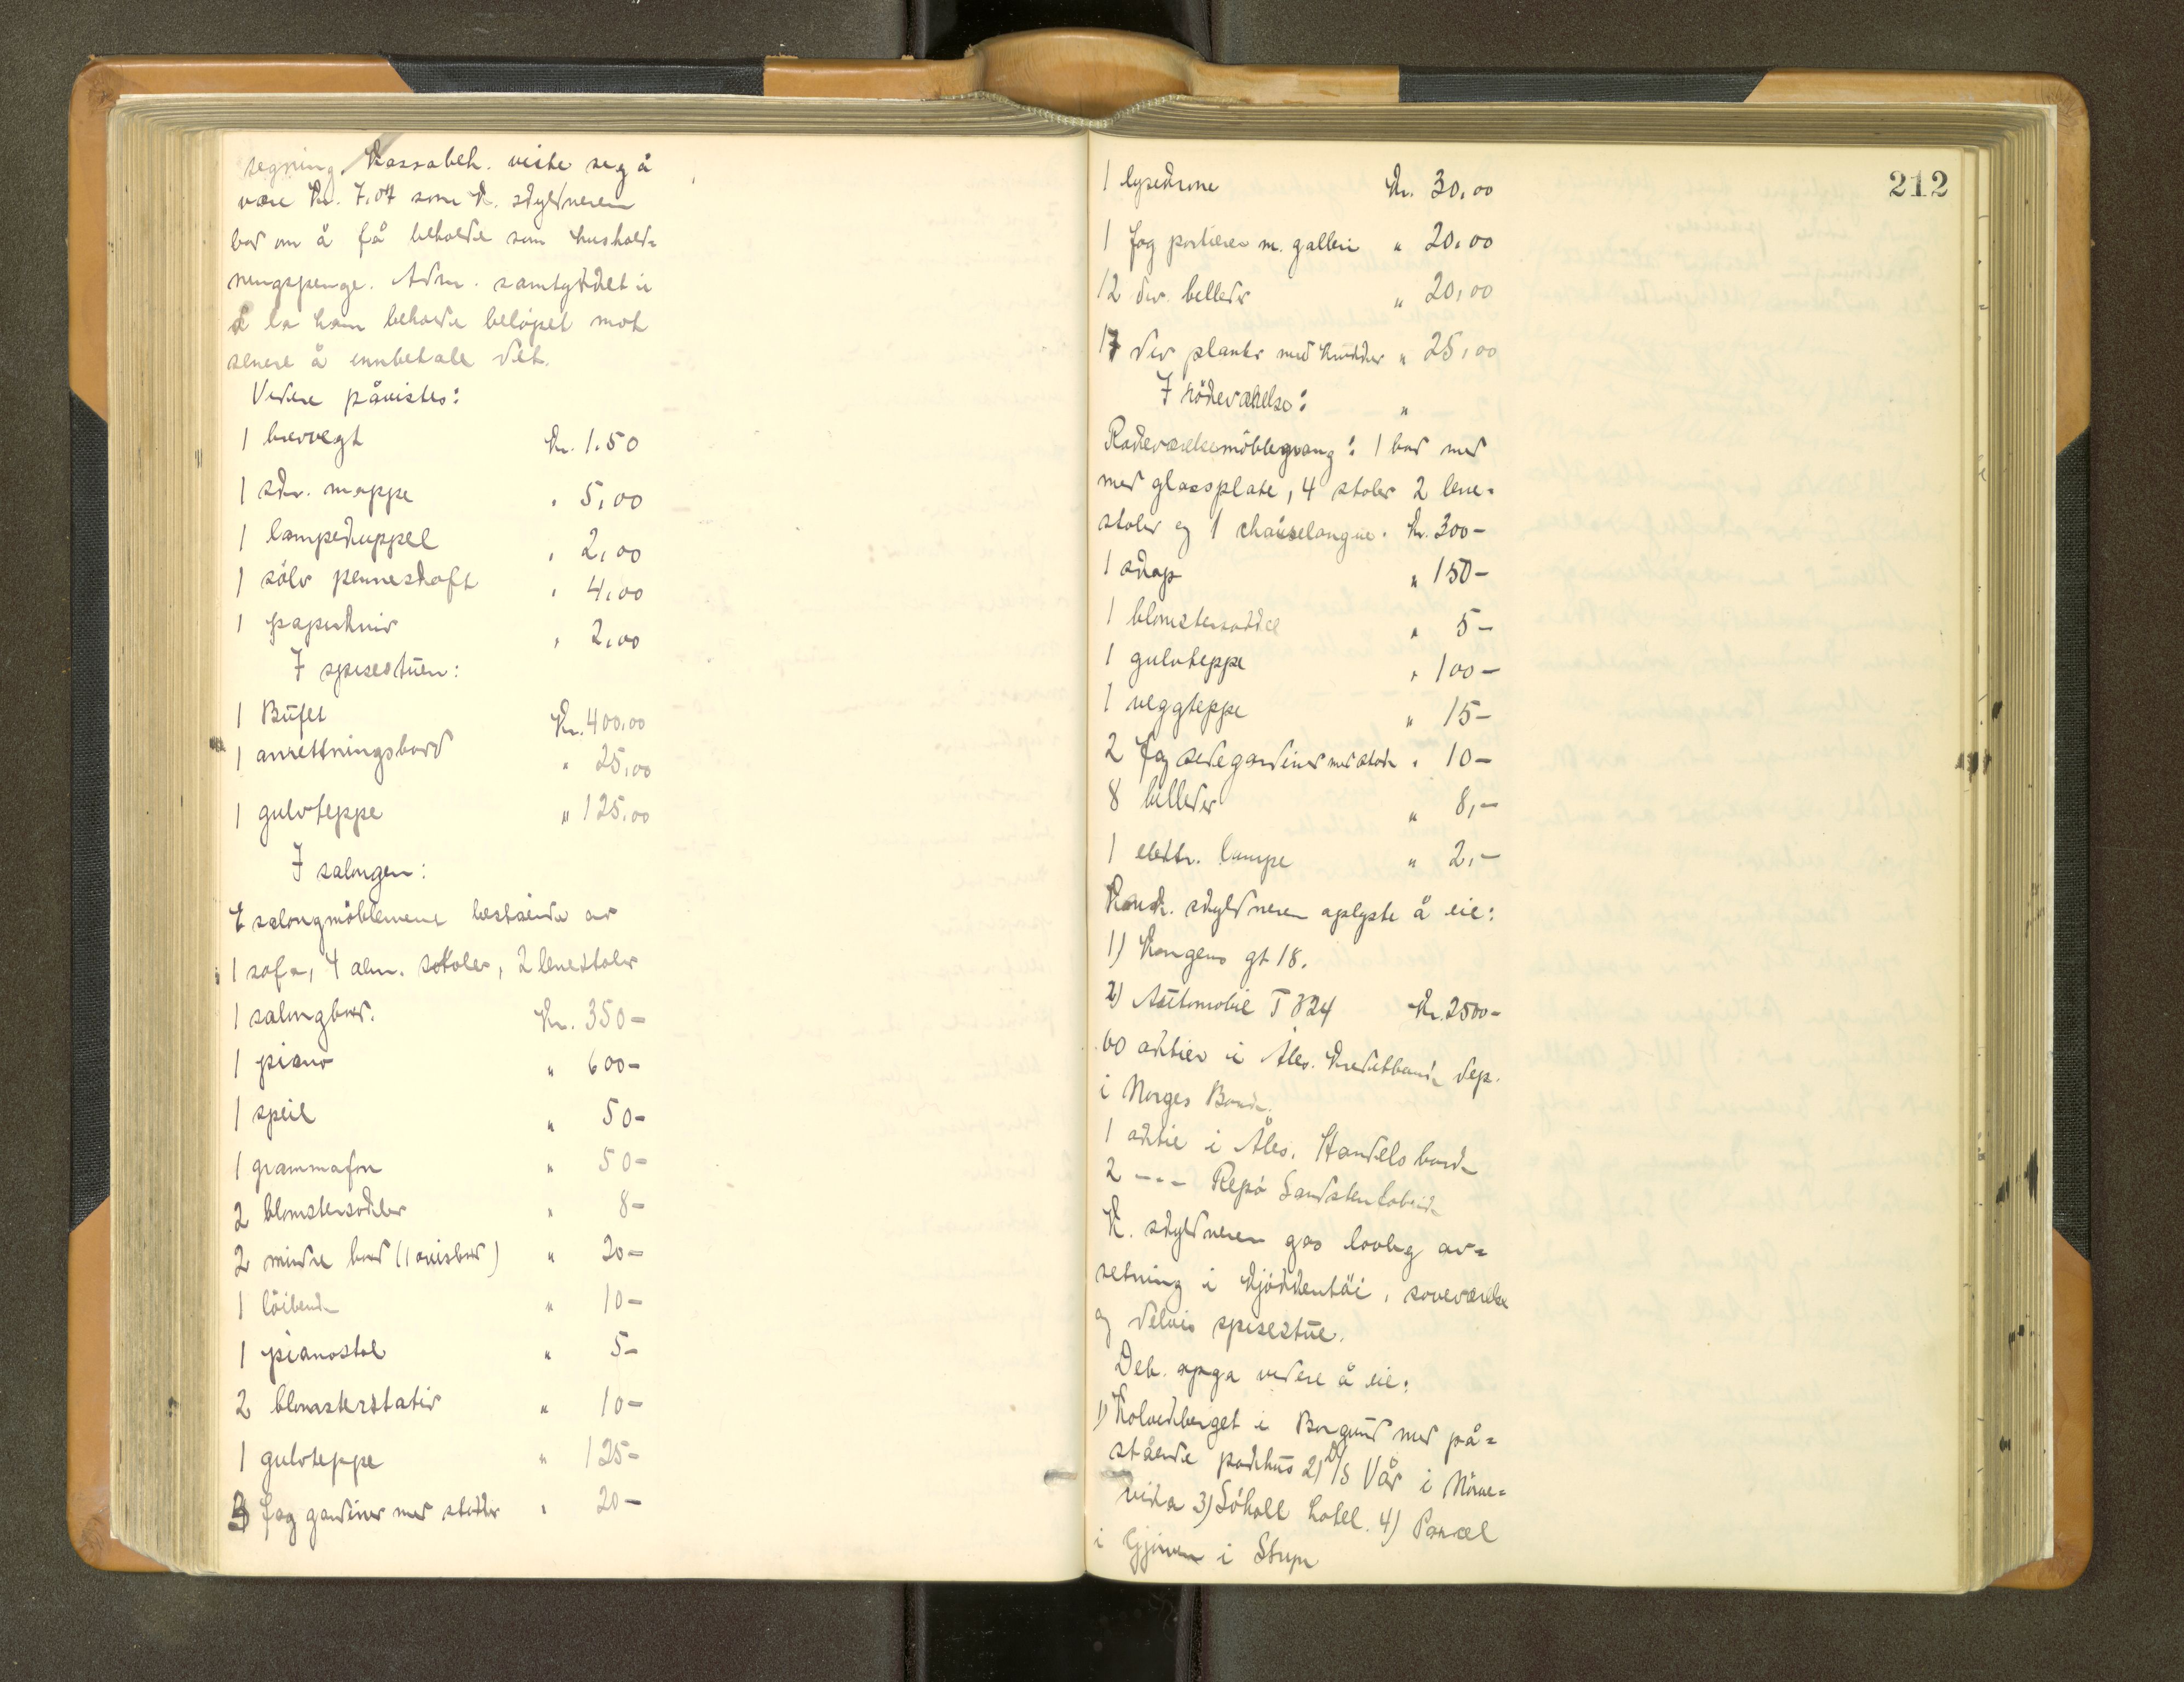 segning. Kassabeh. viste seg å
være Kr. 7.07 som K. skyldneren
bad om å få beholde som hushold=
ningspenge. Adm. samtykket i
å la ham beholde beløpet mot
senere å innbetale det.
Videre påvistes:
1 brevvegt Kr. 1.50
1 skr. mappe " 5,00
1 lampekuppel " 2,00
1 sölv penneskaft " 4,00
1 papirkniv " 2,00
I spisestuen:
1 Buffet Kr. 400,00
1 anrettningsbord " 25,00
1 gulvteppe " 125,00
I salongen:
E salongmöblement bestående av
1 sofa, 4 alm. stoler, 2 lenestoler
1 salongbord. Kr. 350-
1 piano " 600-
1 speil " 50-
1 grammafon " 50-
2 blomstersokler " 8-
2 mindre bord (1 avisbord) " 20-
1 löibenk " 10-
1 pianostol " 5-
2 blomsterstativ " 10-
1 gulvteppe " 125-
3 fag gardiner med stokker " 20-
212
1 lysekrone Kr. 30,00
1 fag portierer m. galleri " 20,00
12 div. billeder " 20,00
17 div planter med krukker " 25,00
I rökeværelse: "
Rökeværelsemöblement: 1 bord med
med glassplate, 4 stoler 2 lene=
stoler og 1 chaiselongue. Kr. 300-
1 skap " 150-
1 blomstersokkel " 5-
1 gulvteppe " 100-
1 veggteppe " 15-
2 fag sidegardiner med stokk " 10-
8 billeder " 8,-
1 elektr. lampe " 2,-
Konk. skyldneren oplyste å eie:
1) Kongens gt 18.
2) Automobil T 824 Kr. 2500-
60 aktier i Åles. Kreditbank dep.
i Norges Bank.
1 aktie i Åles. Handelsbank
2 --- Repö Sandstenfabrik
K. skyldneren gas lovlig av=
setning i kjökkentöi, soveværelse
og delvis spisestue.
Deb. opga videre å eie:
1) Kolvikberget i Borgund med på=
stående pakhus 2) D/S Vår i Mörve=
vika 3) Söholt hotel. 4) Parcel
i i Stryn